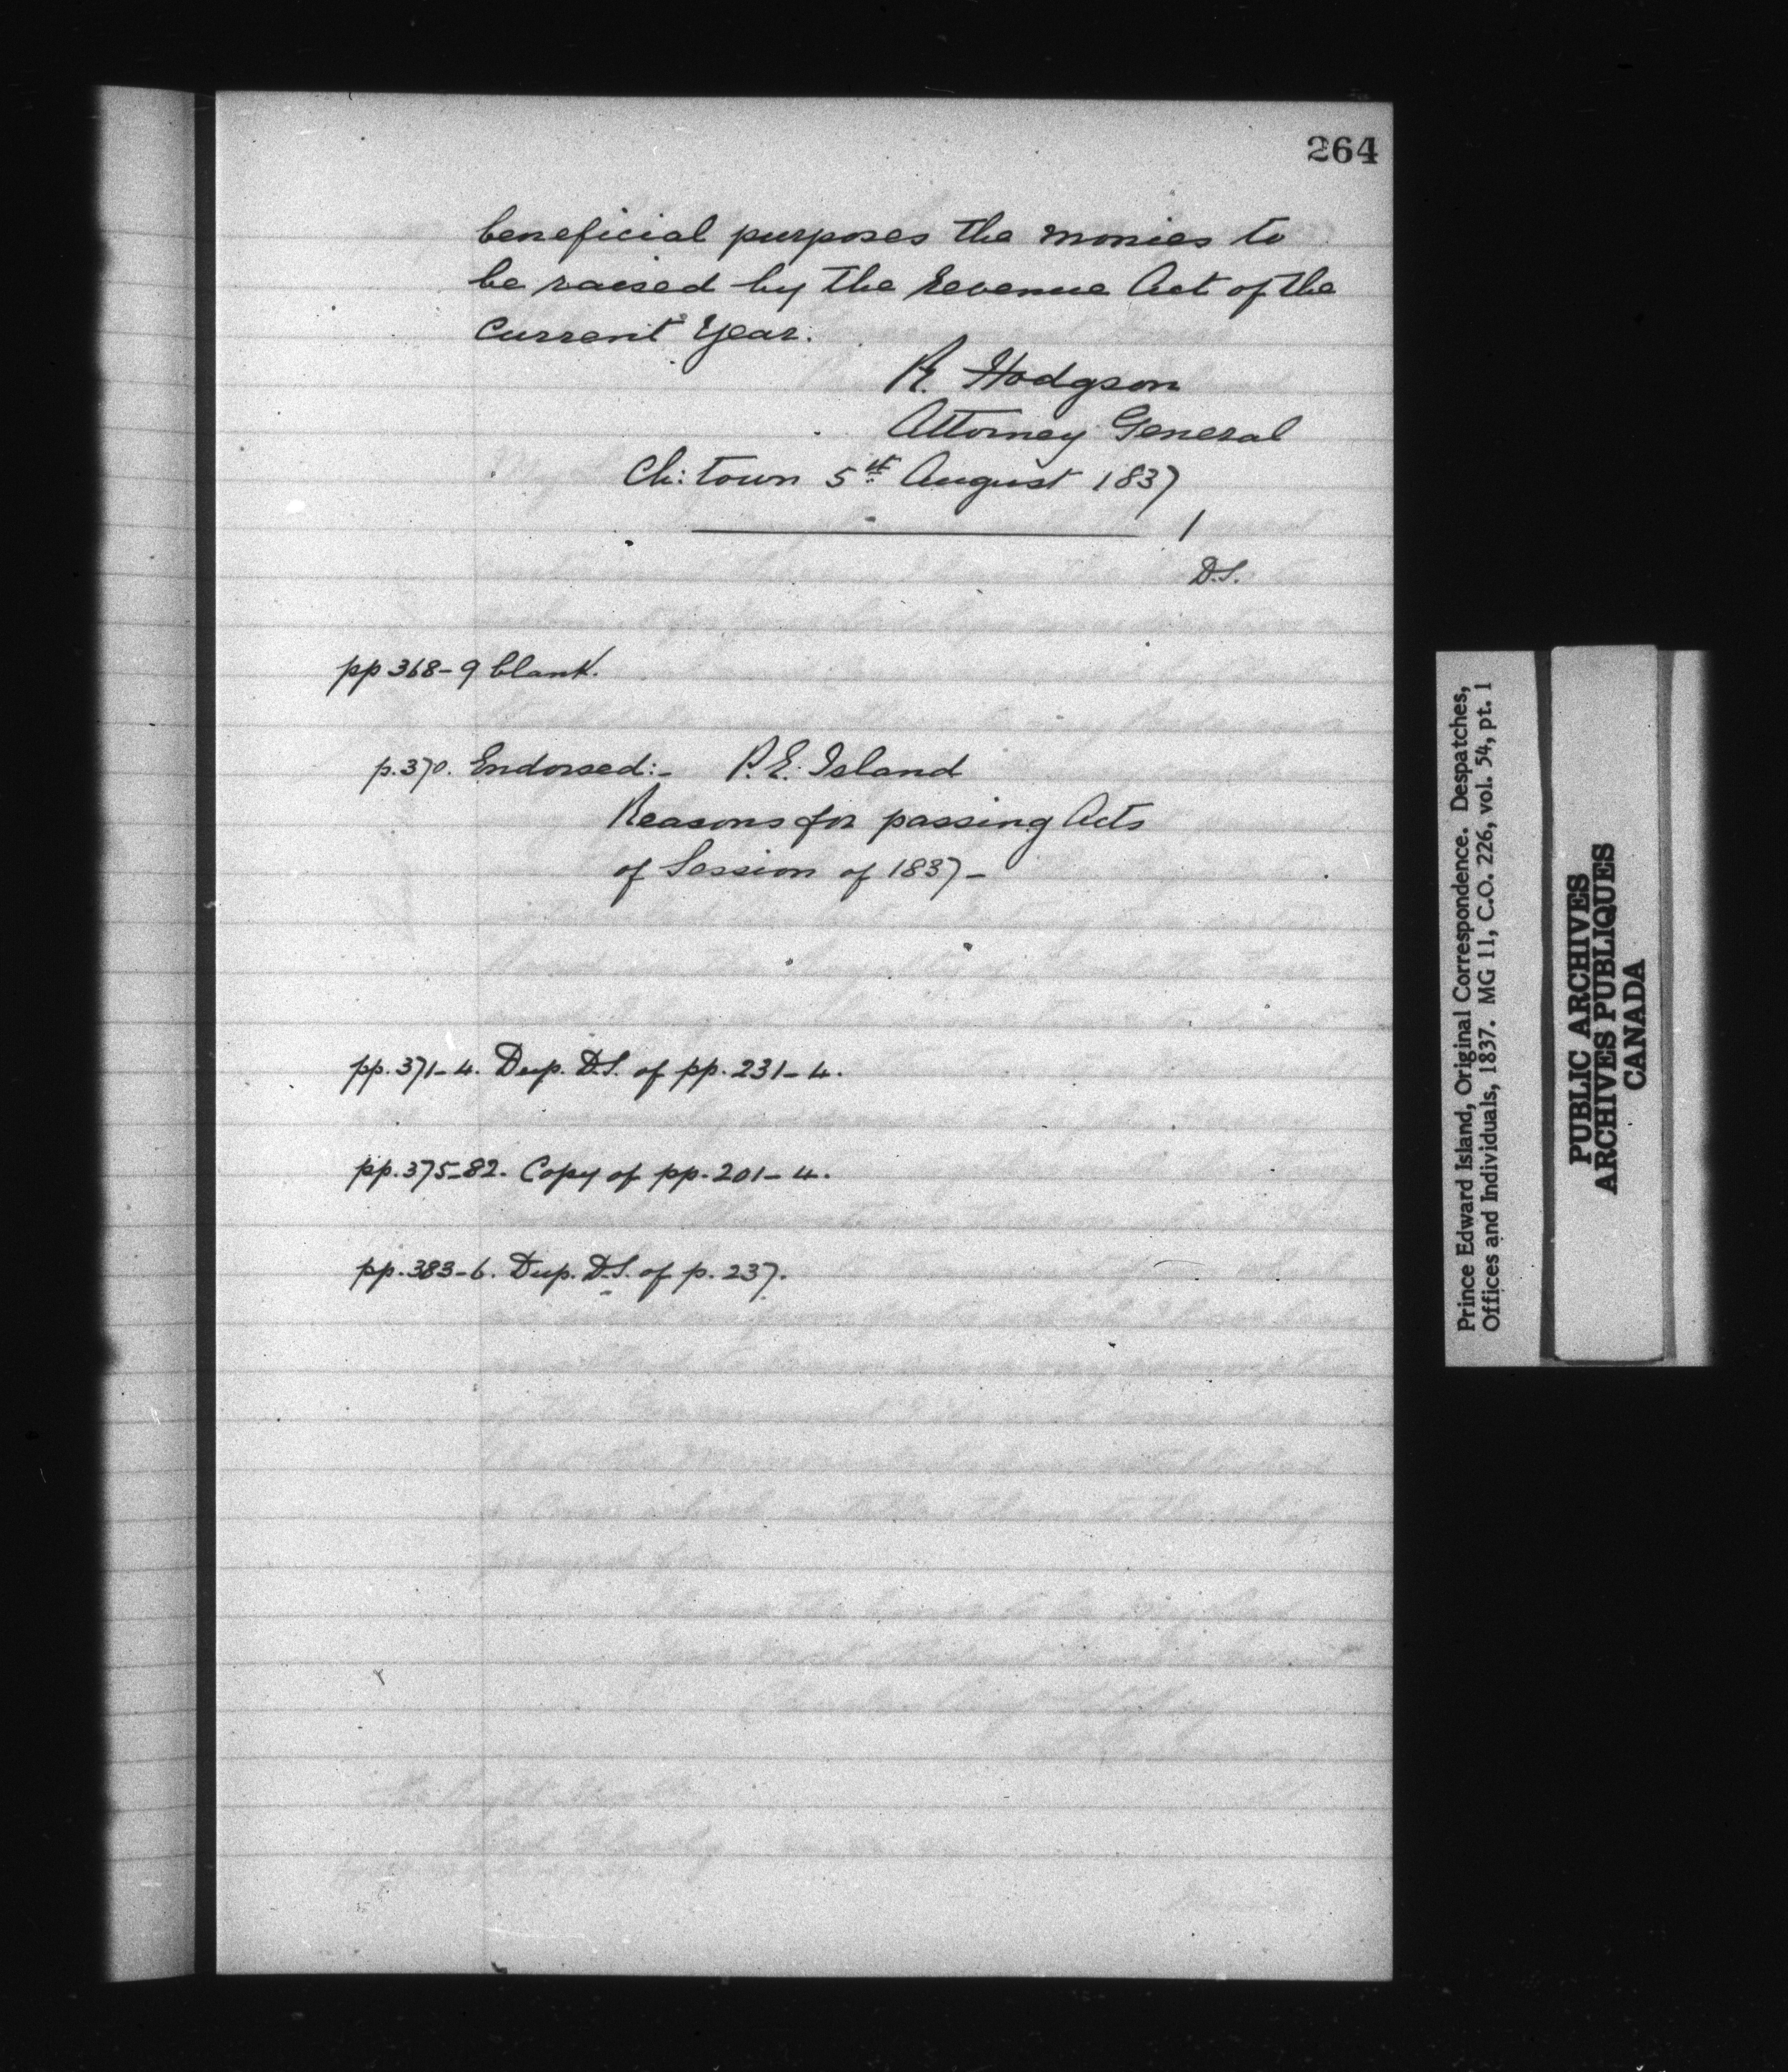 264
beneficial purposes the monies to
be raised by the Revenue Act of the
Current Year.
R. Hodgson
Attorney General
Ch: Town 5th August 1837
D.S.
pp 368-9 blank.
p. 370. Endorsed:- P.E. Island
Reasons for passing Acts
of Session of 1837-
pp. 371-4. Dup. D.S. of pp. 231-4.
pp. 375-82. Copy of pp. 201-4.
pp. 383-6. Dup. D.S. of p. 237.
Prince Edward Island, Original Correspondence. Despatches,
Offices and Individuals, 1837. MG 11, C.O. 226, vol. 54, pt. 1
PUBLIC ARCHIVES
ARCHIVES PUBLIQUES
CANADA